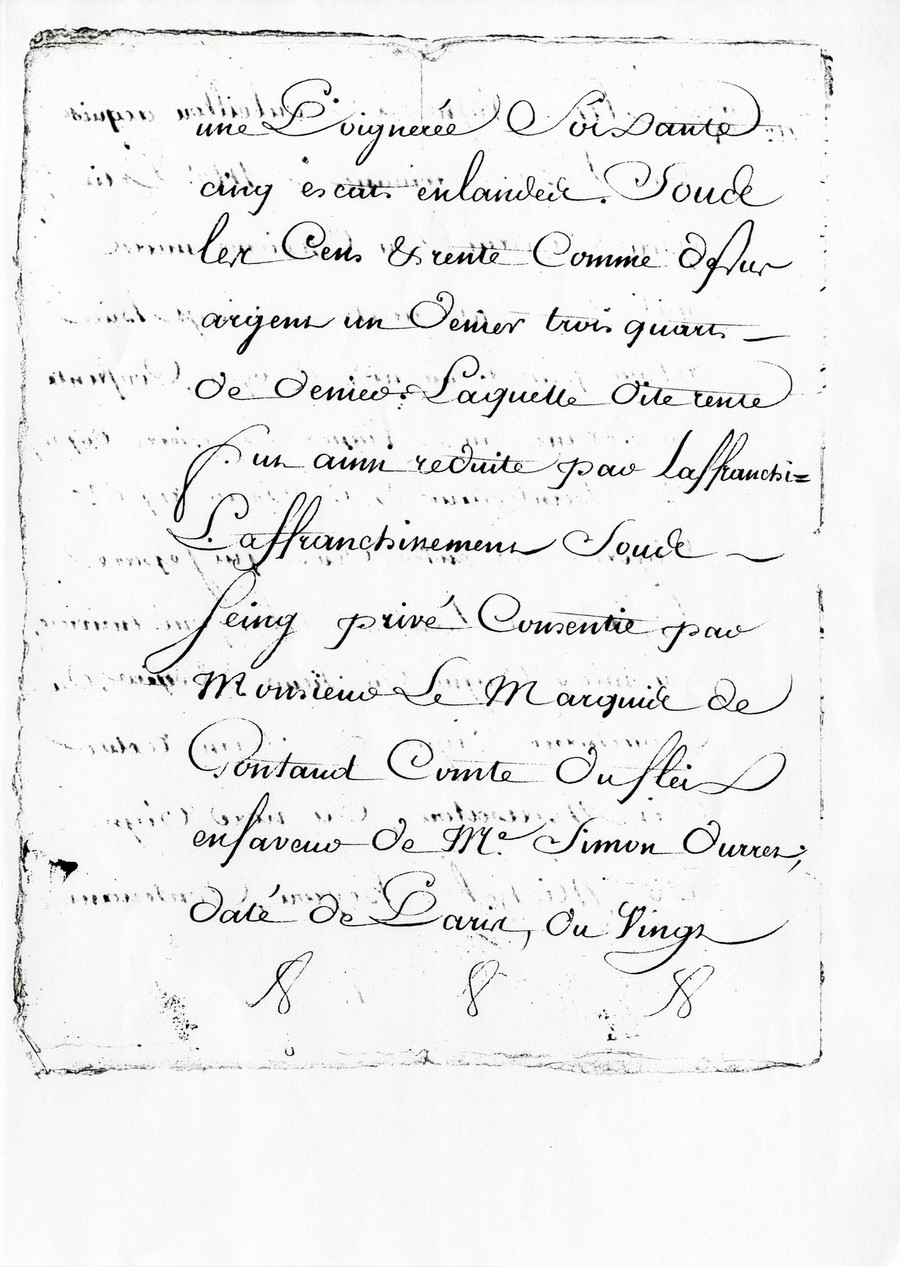 une Poigneréé Soixante
cinq escats enlandes. Soude
les Cens & rente Comme dessus
argent un Denier trois quarts
de denier. Laquelle dite rente
fut ainsi reduite par laffranchi=
Laffranchissement Soude
Seing privé Consentie par
Monsieur Le Marquis de
Pontaud Comte Du fleix
enfaveur de Me. Simon Durres;
daté de Paris, du Vingt